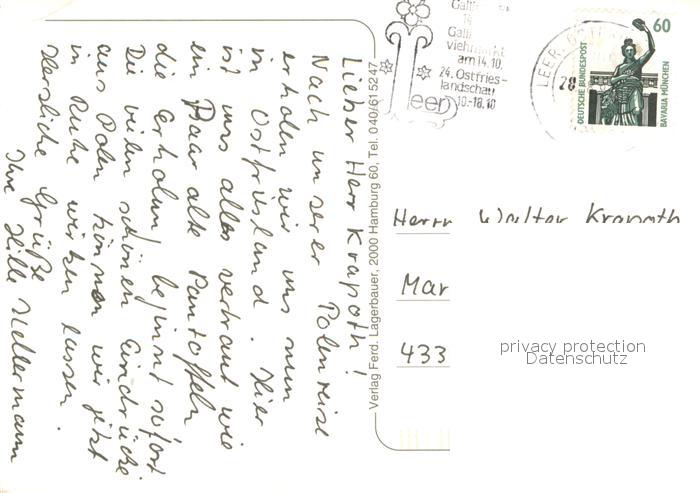 Lieber Herr Krapoth!
Nach unserer Polenreise
erholen wir uns nun
in Ostfriesland. Hier
ist uns alles vertraut wie
ein Paar alte Pantoffeln
die Erholung beginnt sofort
Die vielen schönen Eindrücke
aus Polen können wir jetzt
in Ruhe wirken lassen.
Herzliche Grüße
Ihre Hille Kellermann
Verlag Ferd. Lagerbauer, 2000 Hamburg 60, Tel. 040/615247
Galli
14
Galli
viehmarkt
am 14.10.
24. Ostfries-
landschau
10.-18.10
Leer
LEER, OSTFRIESL
78
DEUTSCHE BUNDESPOST
60
BAVARIA MÜNCHEN
Herrn Walter Krapoth
Mar
433
privacy protection
Datenschutz